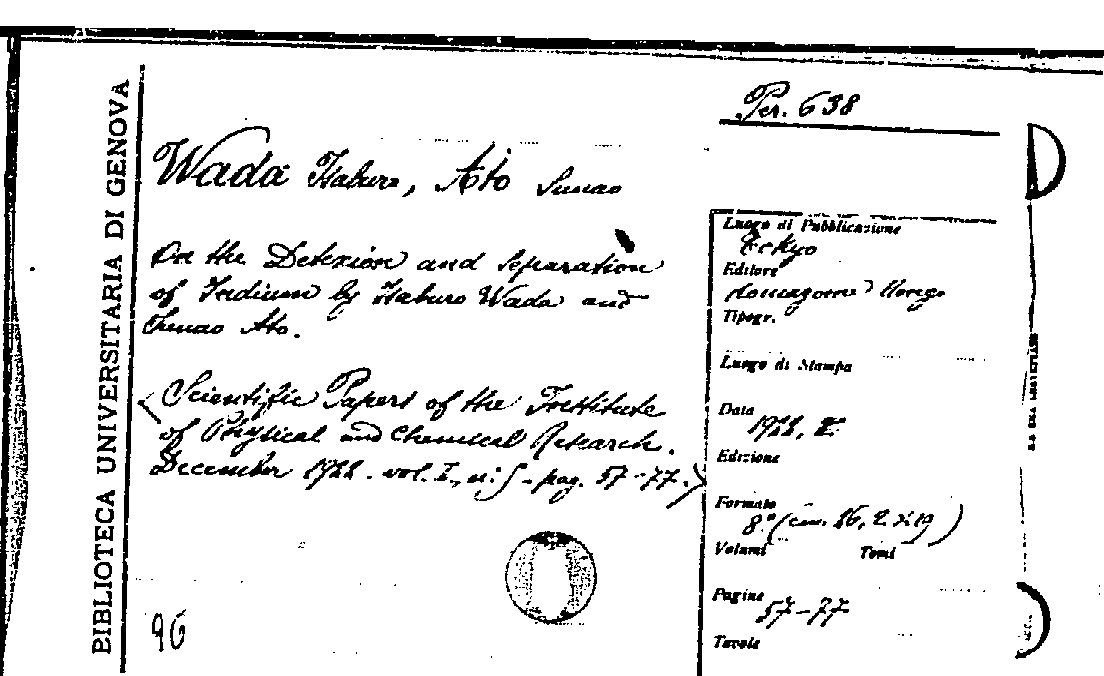 BIBLIOTECA UNIVERSITARIA DI GENOVA
Per. 638
Wada Isaburo, Ato Sunao
On the Detexion and Separation
of Indium by Isaburo Wada and
Sunao Ato.
(Scientific Papers of the Institute
of Physical and Chemical Research.
December 1922. vol. I, n: 5 - pag. 57-77.)
96
Luogo di Pubblicazione
Tokyo
Editore
Komagome Hongo
Tipogr.
Luogo di Stampa
Data
1922, XII
Edizione
Formato
8° (cm. 26,2 x 19)
Volumi Tomi
Pagine
57-77
Tavole